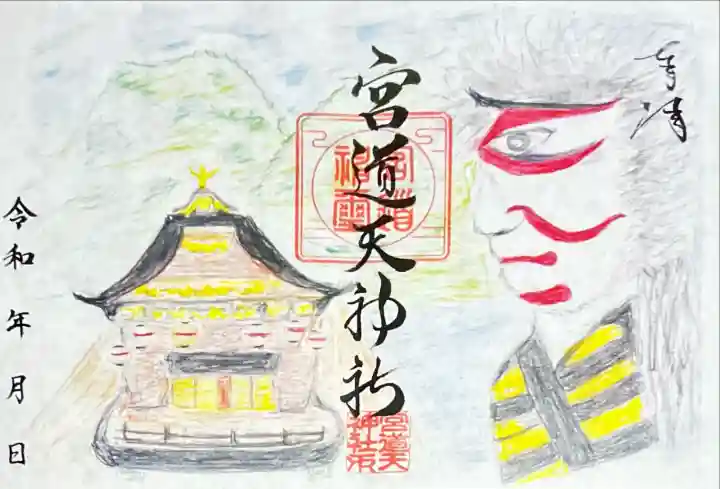 奉拝
宮道天神社
宮道天神社印
令和 年 月 日